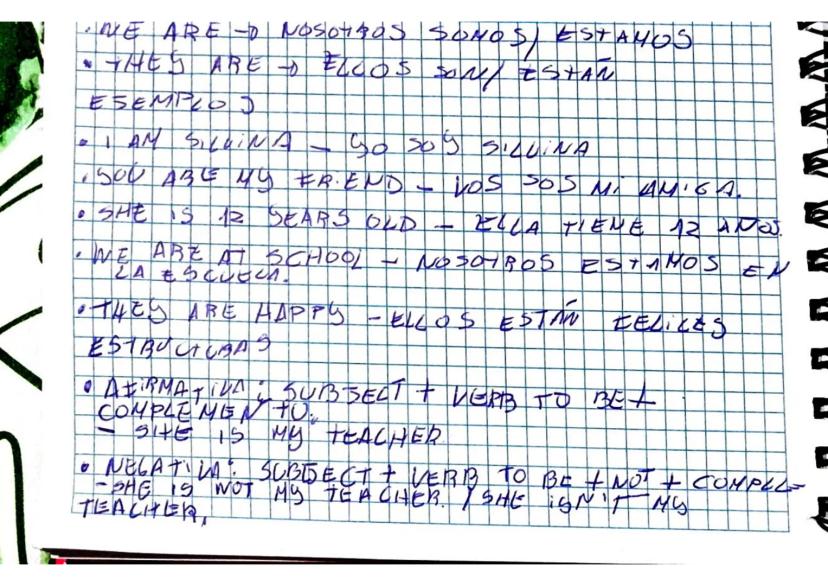 • WE ARE → NOSOTROS SOMOS / ESTAMOS
• THEY ARE → ELLOS SON / ESTÁN
EJEMPLOS
• I AM SILVINA - YO SOY SILVINA
• YOU ARE MY FRIEND - VOS SOS MI AMIGA.
• SHE IS 12 YEARS OLD - ELLA TIENE 12 AÑOS.
• WE ARE AT SCHOOL - NOSOTROS ESTAMOS EN
LA ESCUELA.
• THEY ARE HAPPY - ELLOS ESTÁN FELICES
ESTRUCTURAS
• AFIRMATIVA: SUBJECT + VERB TO BE +
COMPLEMENTO.
- SHE IS MY TEACHER
• NEGATIVA: SUBJECT + VERB TO BE + NOT + COMPLE-
- SHE IS NOT MY TEACHER. / SHE ISN'T MY
TEACHER.